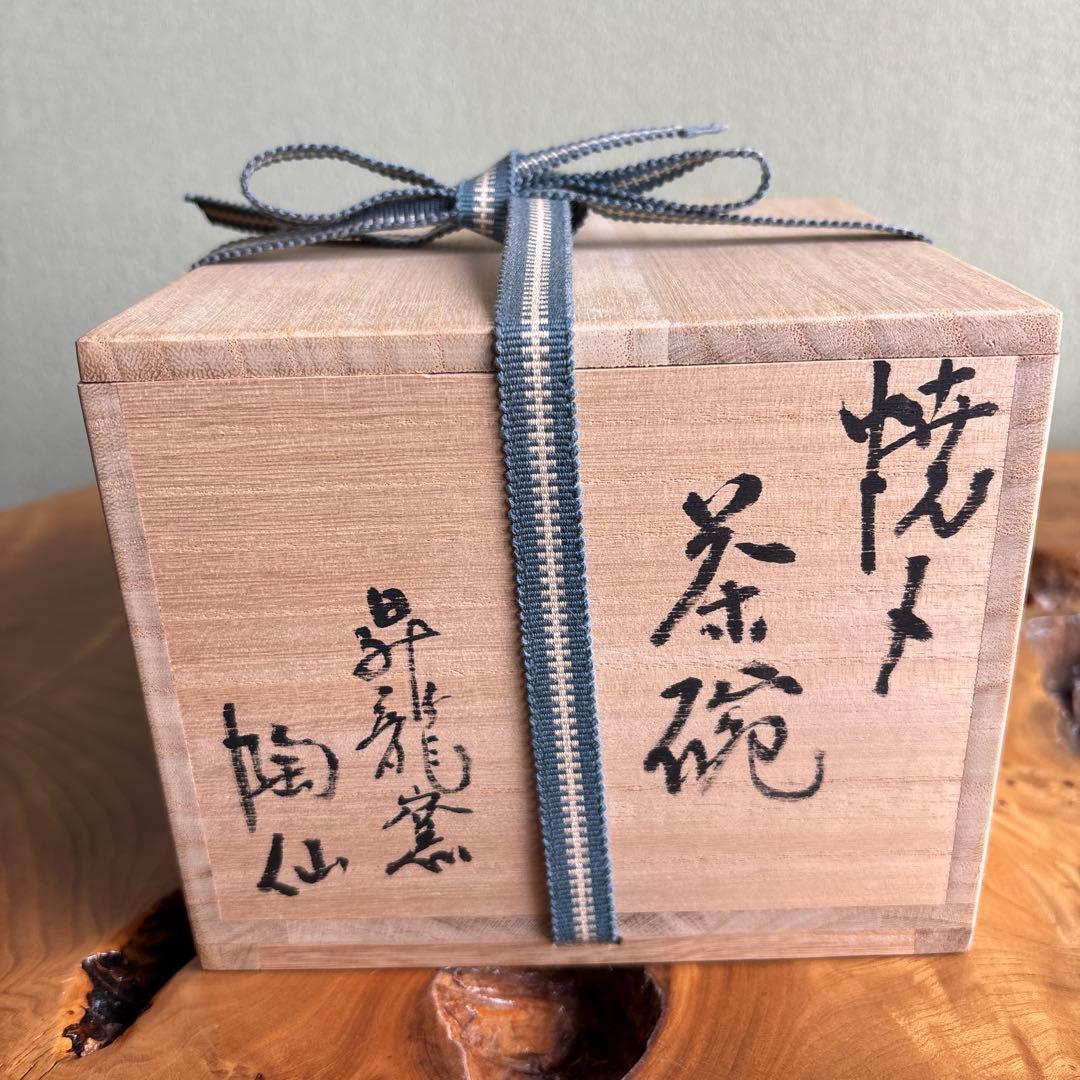 焼〆
茶碗
昇龍窯
陶仙